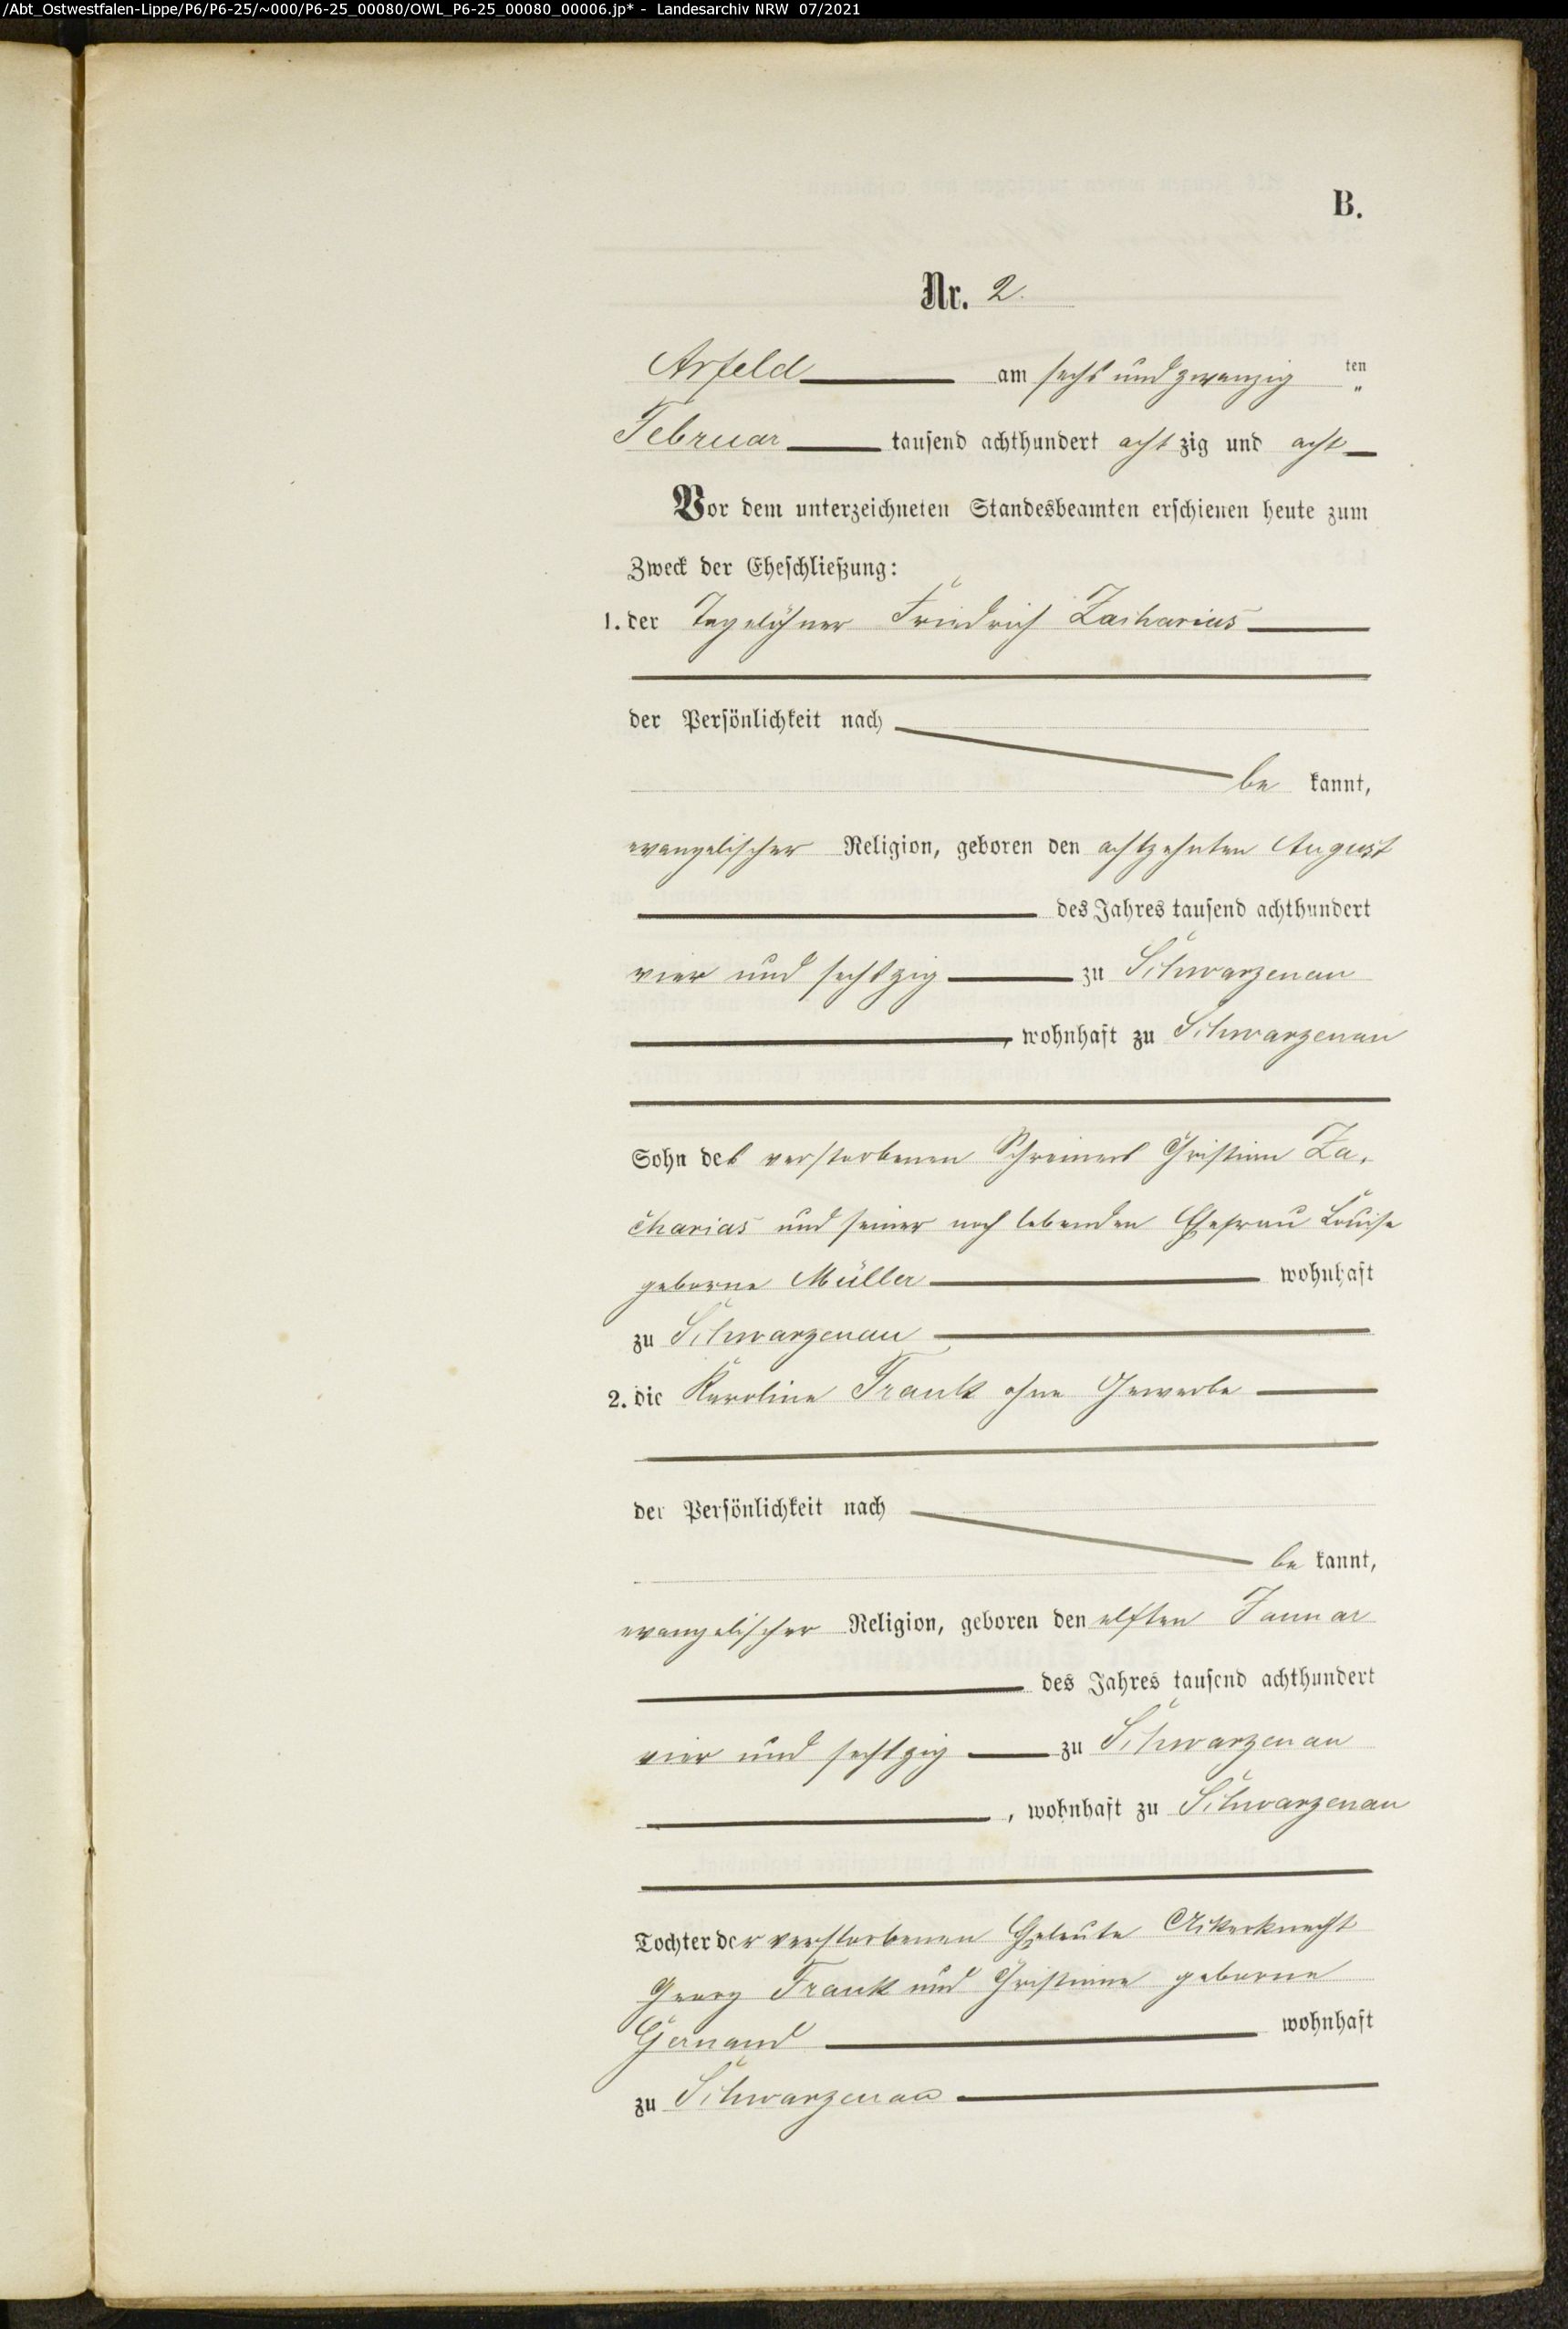 /Abt_Ostwestfalen-Lippe/P6/P6-25/~000/P6-25_00080/OWL_P6-25_00080_00006.jp* - Landesarchiv NRW 07/2021
B.
Nr. 2.
Arfeld am sechs und zwanzig ten
Februar tausend achthundert acht zig und acht
Vor dem unterzeichneten Standesbeamten erschienen heute zum
Zweck der Eheschließung:
1. der Tagelöhner Friedrich Zacharias
der Persönlichkeit nach
be kannt,
evangelischer Religion, geboren den achtzehnten August
des Jahres tausend achthundert
vier und sechszig zu Schwarzenau
, wohnhaft zu Schwarzenau
Sohn des verstorbenen Schreiners Christian Za-
charias und seiner noch lebenden Ehefrau Louise
geborne Müller wohnhaft
zu Schwarzenau
2. die Karoline Frank ohne Gewerbe
der Persönlichkeit nach
be kannt,
evangelischer Religion, geboren den elften Januar
des Jahres tausend achthundert
vier und sechszig zu Schwarzenau
, wohnhaft zu Schwarzenau
Tochter der verstorbenen Eheleute Ackerknecht
Georg Frank und Christiane geborne
Gernand wohnhaft
zu Schwarzenau